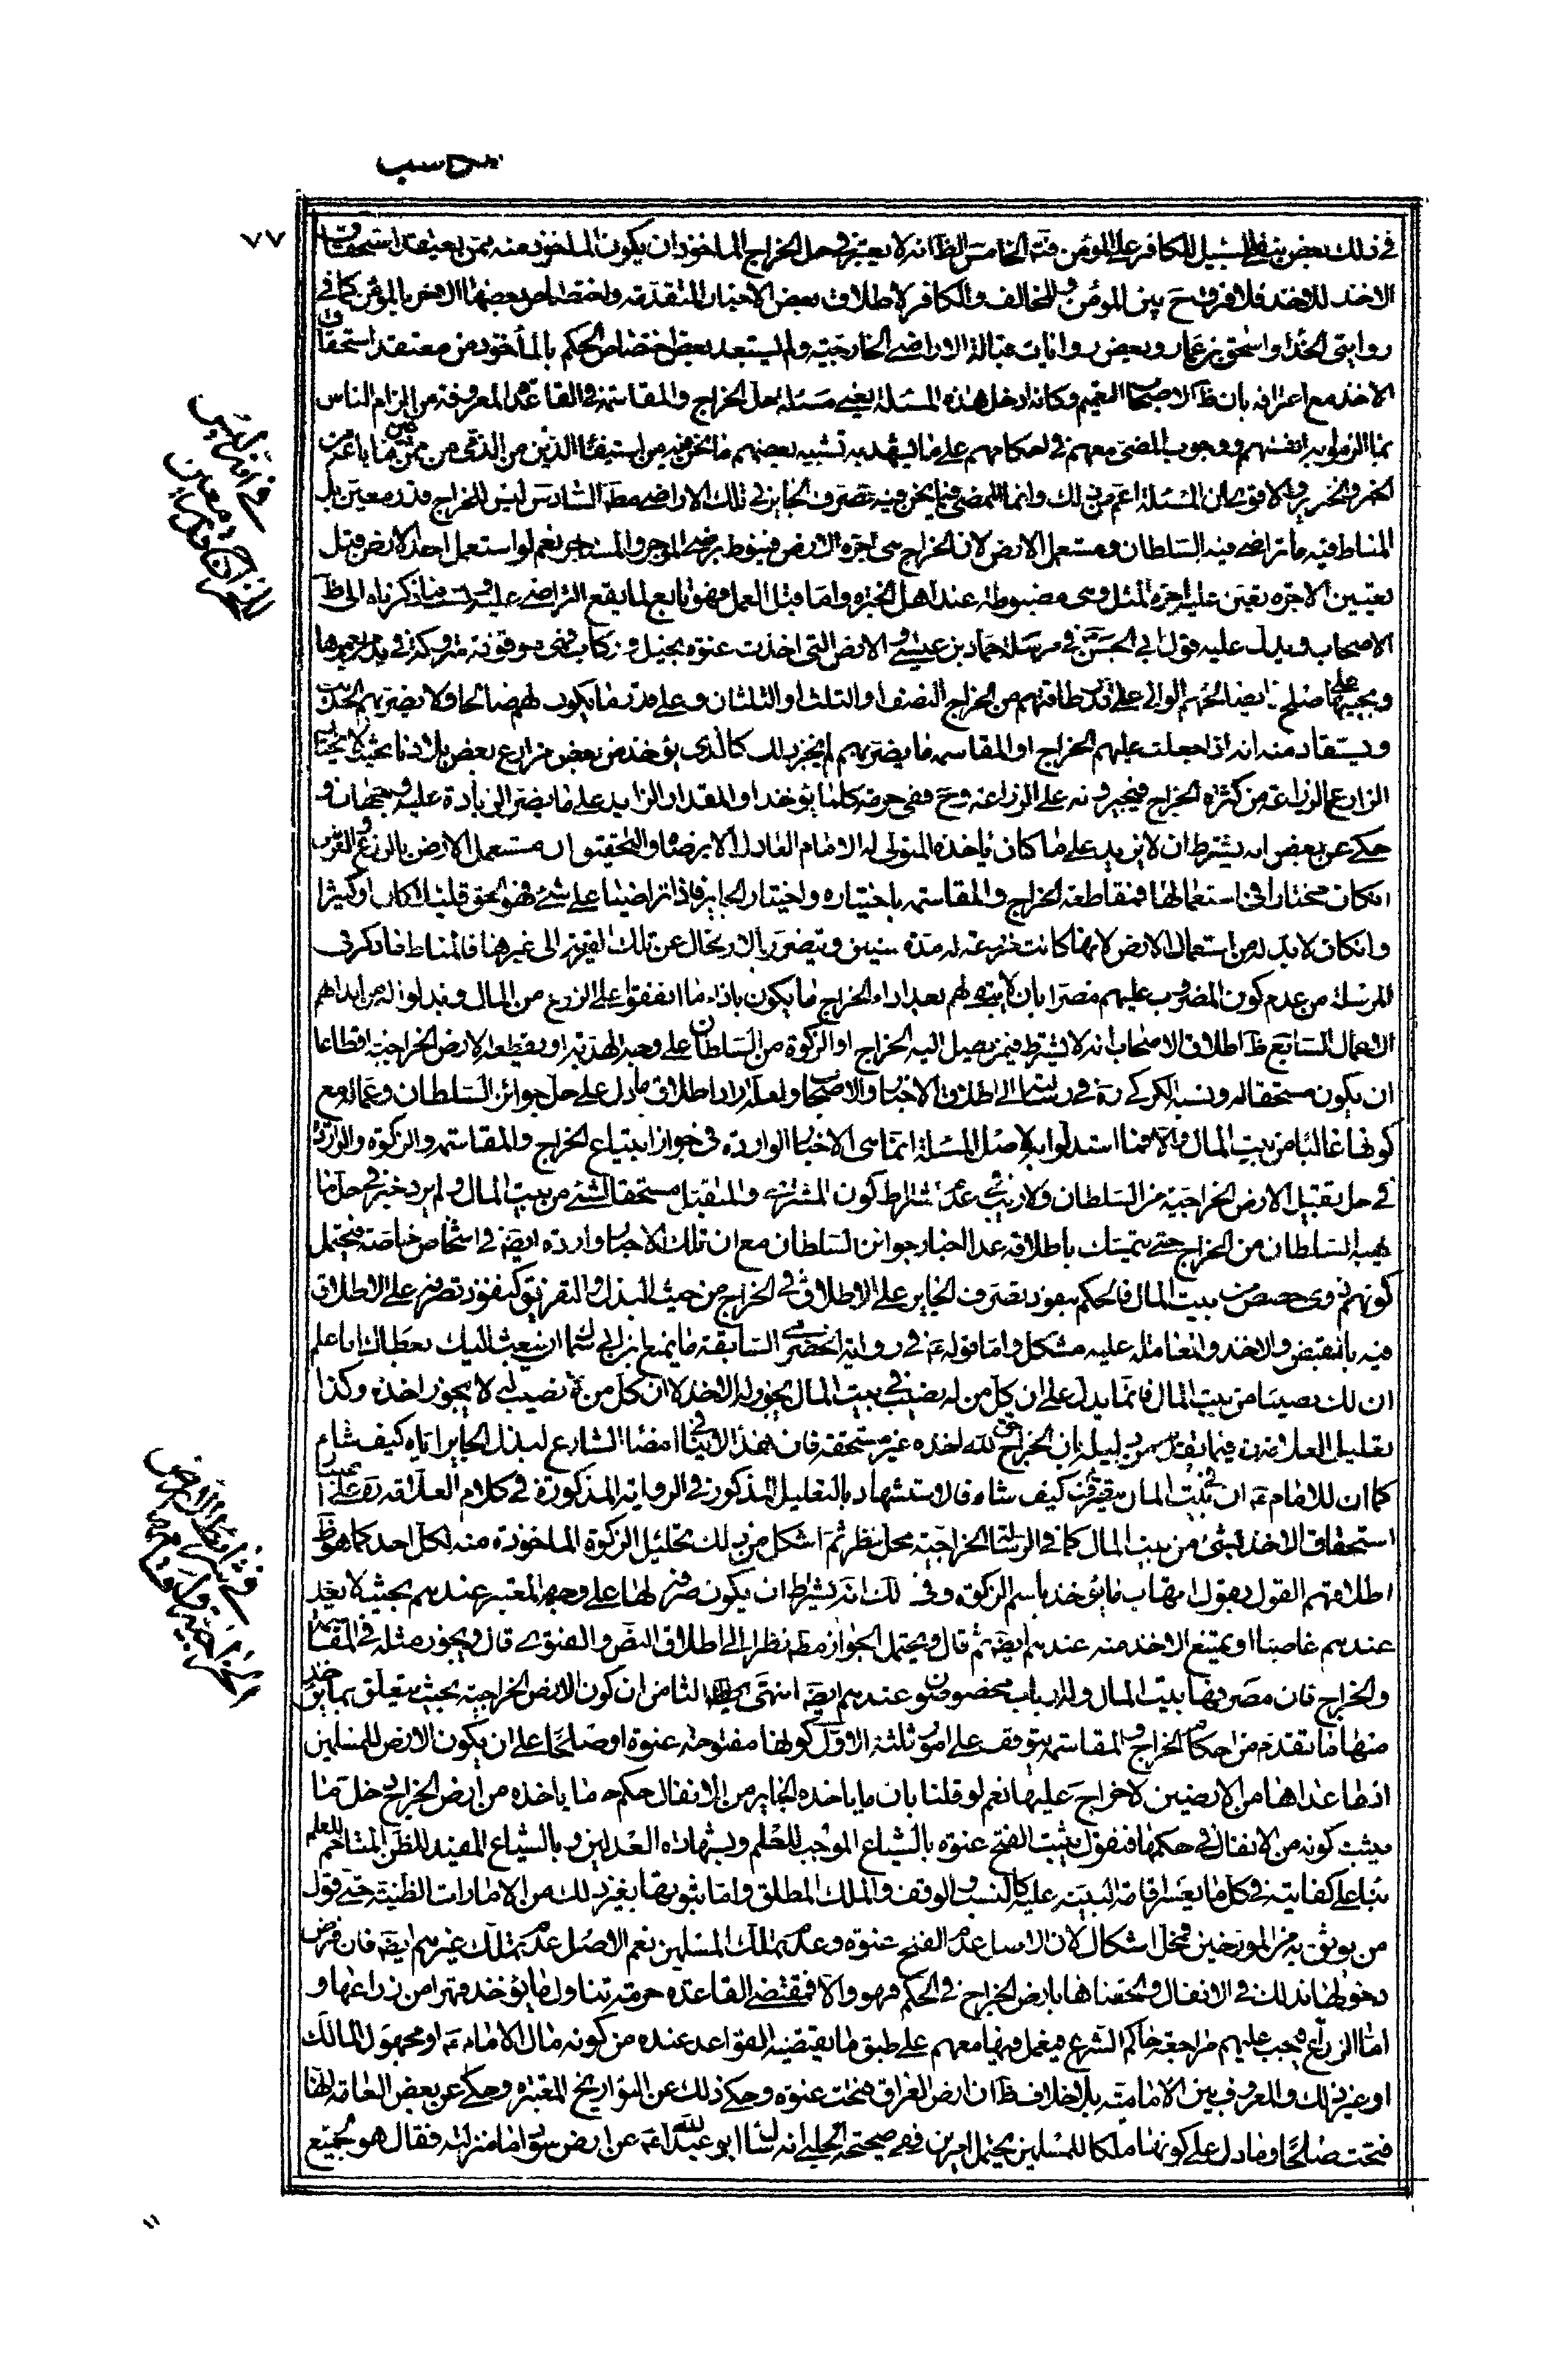 مكاسب
٧٧
في ذلك بعض تسلط السبيل للكافر على المؤمن فتأمل الخامس الظ انه لا يعتبر في حل الخراج الماخوذ ان يكون الماخوذ منه ممن يعتقد استحقاق
الاخذ للاخذ فلا فرق ح بين المؤمن والمخالف والكافر لاطلاق بعض الاخبار المتقدمة واختصاص بعضها الاخر بالمؤمن كما في
روايتي الحذاء واسحق بن عمار وبعض روايات قبالة الاراضي الخارجية ولم يستبعد بعض اختصاص الحكم بالمأخوذ من معتقد استحقاق
الاخذ مع اعترافه بان ظ الاصحاب التعميم وكانه ادخل هذه المسئلة يعني مسئلة حل الخراج والمقاسمة في القاعدة المعروفة من الزام الناس
بما الزموا به انفسهم ووجوب المضي معهم في احكامهم على ما يشهد به تشبيه بعضهم ما نحن فيه من استيفاء الدين من الذمي من ثمن ما باعه من
الخمر والخنزير والاقوى ان المسئلة اعم من ذلك وانما الممضي فيما نحن فيه تصرف الجائر في تلك الاراضي مط السادس ليس للخراج قدر معين بل
المناط فيه ما تراضى فيه السلطان ومستعمل الارض لان الخراج هي اجرة الارض فينوط برضى الموجر والمستاجر نعم لو استعمل احد الارض قبل
تعيين الاجرة تعين عليه اجرة المثل وهي مضبوطة عند اهل الخبرة واما قبل العمل فهو تابع لما يقع التراضي عليه ونسب ما ذكرناه الى ظ
الاصحاب ويدل عليه قول ابي الحسن في مرسلة حماد بن عيسى والارض التي اخذت عنوة بخيل وركاب فهي موقوفة متروكة في يد من يعمرها
ويحييها على صلح ما يصالحهم الوالي على قدر طاقتهم من الخراج النصف او الثلث او الثلثان وعلى قدر ما يكون لهم صالحا ولا يضر بهم الحديث
ويستفاد منه انه اذا جعلت عليهم الخراج او المقاسمة ما يضر بهم لم يجز ذلك كالذي يؤخذ من بعض مزارع بعض بلادنا بحيث لا يختار
الزارع الزراعة من كثرة الخراج فيجبرونه على الزراعة وح ففي حرمة كلما يؤخذ او المقدار الزايد على ما يضر الزيادة عليه وجهان و
حكي عن بعض انه يشترط ان لا يزيد على ما كان ياخذه المتولي له الامام العادل الا برضاه والتحقيق ان مستعمل الارض بالزرع والغرس
انكان مختارا في استعمالها فمقاطعة الخراج والمقاسمة باختياره واختيار الجاير فاذا تراضيا على شئ فهو الحق قليلا كان او كثيرا
وانكان لا بد له من استعمال الارض لانها كانت مزرعة له مدة سنين ويتضرر بالارتحال عن تلك القرية الى غيرها فالمناط ما ذكر في
المرسلة من عدم كون المضروب عليهم مضرا بان لا يبقى لهم بعد اداء الخراج ما يكون بازاء ما انفقوا على الزرع من المال وبذلوا له من ابدانهم
الاعمال السابع ظ اطلاق الاصحاب انه لا يشترط فيمن يصل اليه الخراج او الزكوة من السلطان على وجه الهدية او يقطعه الارض الخراجية اقطاعا
ان يكون مستحقا له ونسبه الكركي ره في رسالته الى اطلاق الاخبار والاصحاب ولعله اراد اطلاق ما دل على حل جوائز السلطان وعماله مع
كونها غالبا من بيت المال والا فما استدلوا به لاصل المسئلة انما هي الاخبار الواردة في جواز ابتياع الخراج والمقاسمة والزكوة والواردة
في حل تقبيل الارض الخراجية من السلطان ولا ريب في عدم اشتراط كون المشتري والمتقبل مستحقا لشئ من بيت المال ولم يرد خبر في حل ما
يهبه السلطان من الخراج حتى يتمسك باطلاقه عدا اخبار جوائز السلطان مع ان تلك الاخبار واردة ايضا في اشخاص خاصة فيحتمل
كونهم ذوي حصص من بيت المال فالحكم بنفوذ تصرف الجاير على الاطلاق في الخراج من حيث البذل والتفريق كنفوذ تصرفه على الاطلاق
فيه بالقبض والاخذ والمعاملة عليه مشكل واما قوله ع في رواية الحضرمي السابقة ما يمنع ابن ابي سماك ان يبعث اليك بعطائك اما علم
ان لك نصيبا من بيت المال فانما يدل على ان كل من له نصيب في بيت المال يجوز له الاخذ لا ان كل من لا نصيب له لا يجوز اخذه وكذا
تعليل العلامة ره فيما تقدم من دليله بان الخراج حق لله اخذه غير مستحقه فان هذا لا ينافي امضاء الشارع لبذل الجاير اياه كيف شاء
كما ان للامام ع ان يتصرف في بيت المال كيف شاء فالاستشهاد بالتعليل المذكور في الرواية المذكورة في كلام العلامة ره على اعتبار
استحقاق الاخذ لشئ من بيت المال كما في الرسالة الخراجية محل نظر ثم اشكل من ذلك تحليل الزكوة الماخوذة منه لكل احد كما هو ظ
اطلاقهم القول بحل اتهاب ما يؤخذ باسم الزكوة وفي لك انه يشترط ان يكون صرفه لها على وجهها المعتبر عندهم بحيث لا يعد
عندهم غاصبا او يمتنع الاخذ منه عندهم ايضا ثم قال ويحتمل الجواز مط نظرا الى اطلاق النص والفتوى قال ويجوز مثله في المقاسمة
والخراج فان مصرفها بيت المال وله ارباب مخصوصون عندهم ايضا انتهى الثامن ان كون الارض الخراجية بحيث يتعلق بما يؤخذ
منها ما تقدم من احكام الخراج والمقاسمة يتوقف على امور ثلثة الاول كونها مفتوحة عنوة او صلحا على ان يكون الارض للمسلمين
اذ ما عداها من الارضين لا خراج عليها نعم لو قلنا بان ما ياخذه الجاير من الانفال حكمه ما ياخذه من ارض الخراج دخل ما
يثبت كونه من الانفال في حكمها فنقول يثبت الفتح عنوة بالشياع الموجب للعلم وبشهادة العدلين وبالشياع المفيد للظن المتاخم للعلم
بناء على كفايته في كل ما يعسر اقامة البينة عليه كالنسب والوقف والملك المطلق واما ثبوتها بغير ذلك من الامارات الظنية حتى قول
من يوثق به من المورخين فمحل اشكال لان الاصل عدم الفتح عنوة وعدم تملك المسلمين نعم الاصل عدم تملك غيرهم ايضا فان فرض
دخولها بذلك في الانفال والحقناها بارض الخراج في الحكم فهو والا فمقتضى القاعدة حرمة تناول ما يؤخذ قهرا من زراعها و
اما الزراع فيجب عليهم مراجعة حاكم الشرع فيعمل فيها معهم على طبق ما يقتضيه القواعد عنده من كونه مال الامام ع او مجهول المالك
او غير ذلك والمعروف بين الامامية بلا خلاف ظ ان ارض العراق فتحت عنوة وحكي ذلك عن التواريخ المعتبرة وحكي عن بعض العامة انها
فتحت صلحا وما دل على كونها ملكا للمسلمين يحتمل الامرين ففي صحيحة الحلبي انه سئل ابو عبد الله ع عن ارض السواد ما منزلته فقال هو لجميع
في انه ليس
للخراج قدر معين
في شرائط الارض
الخراجية